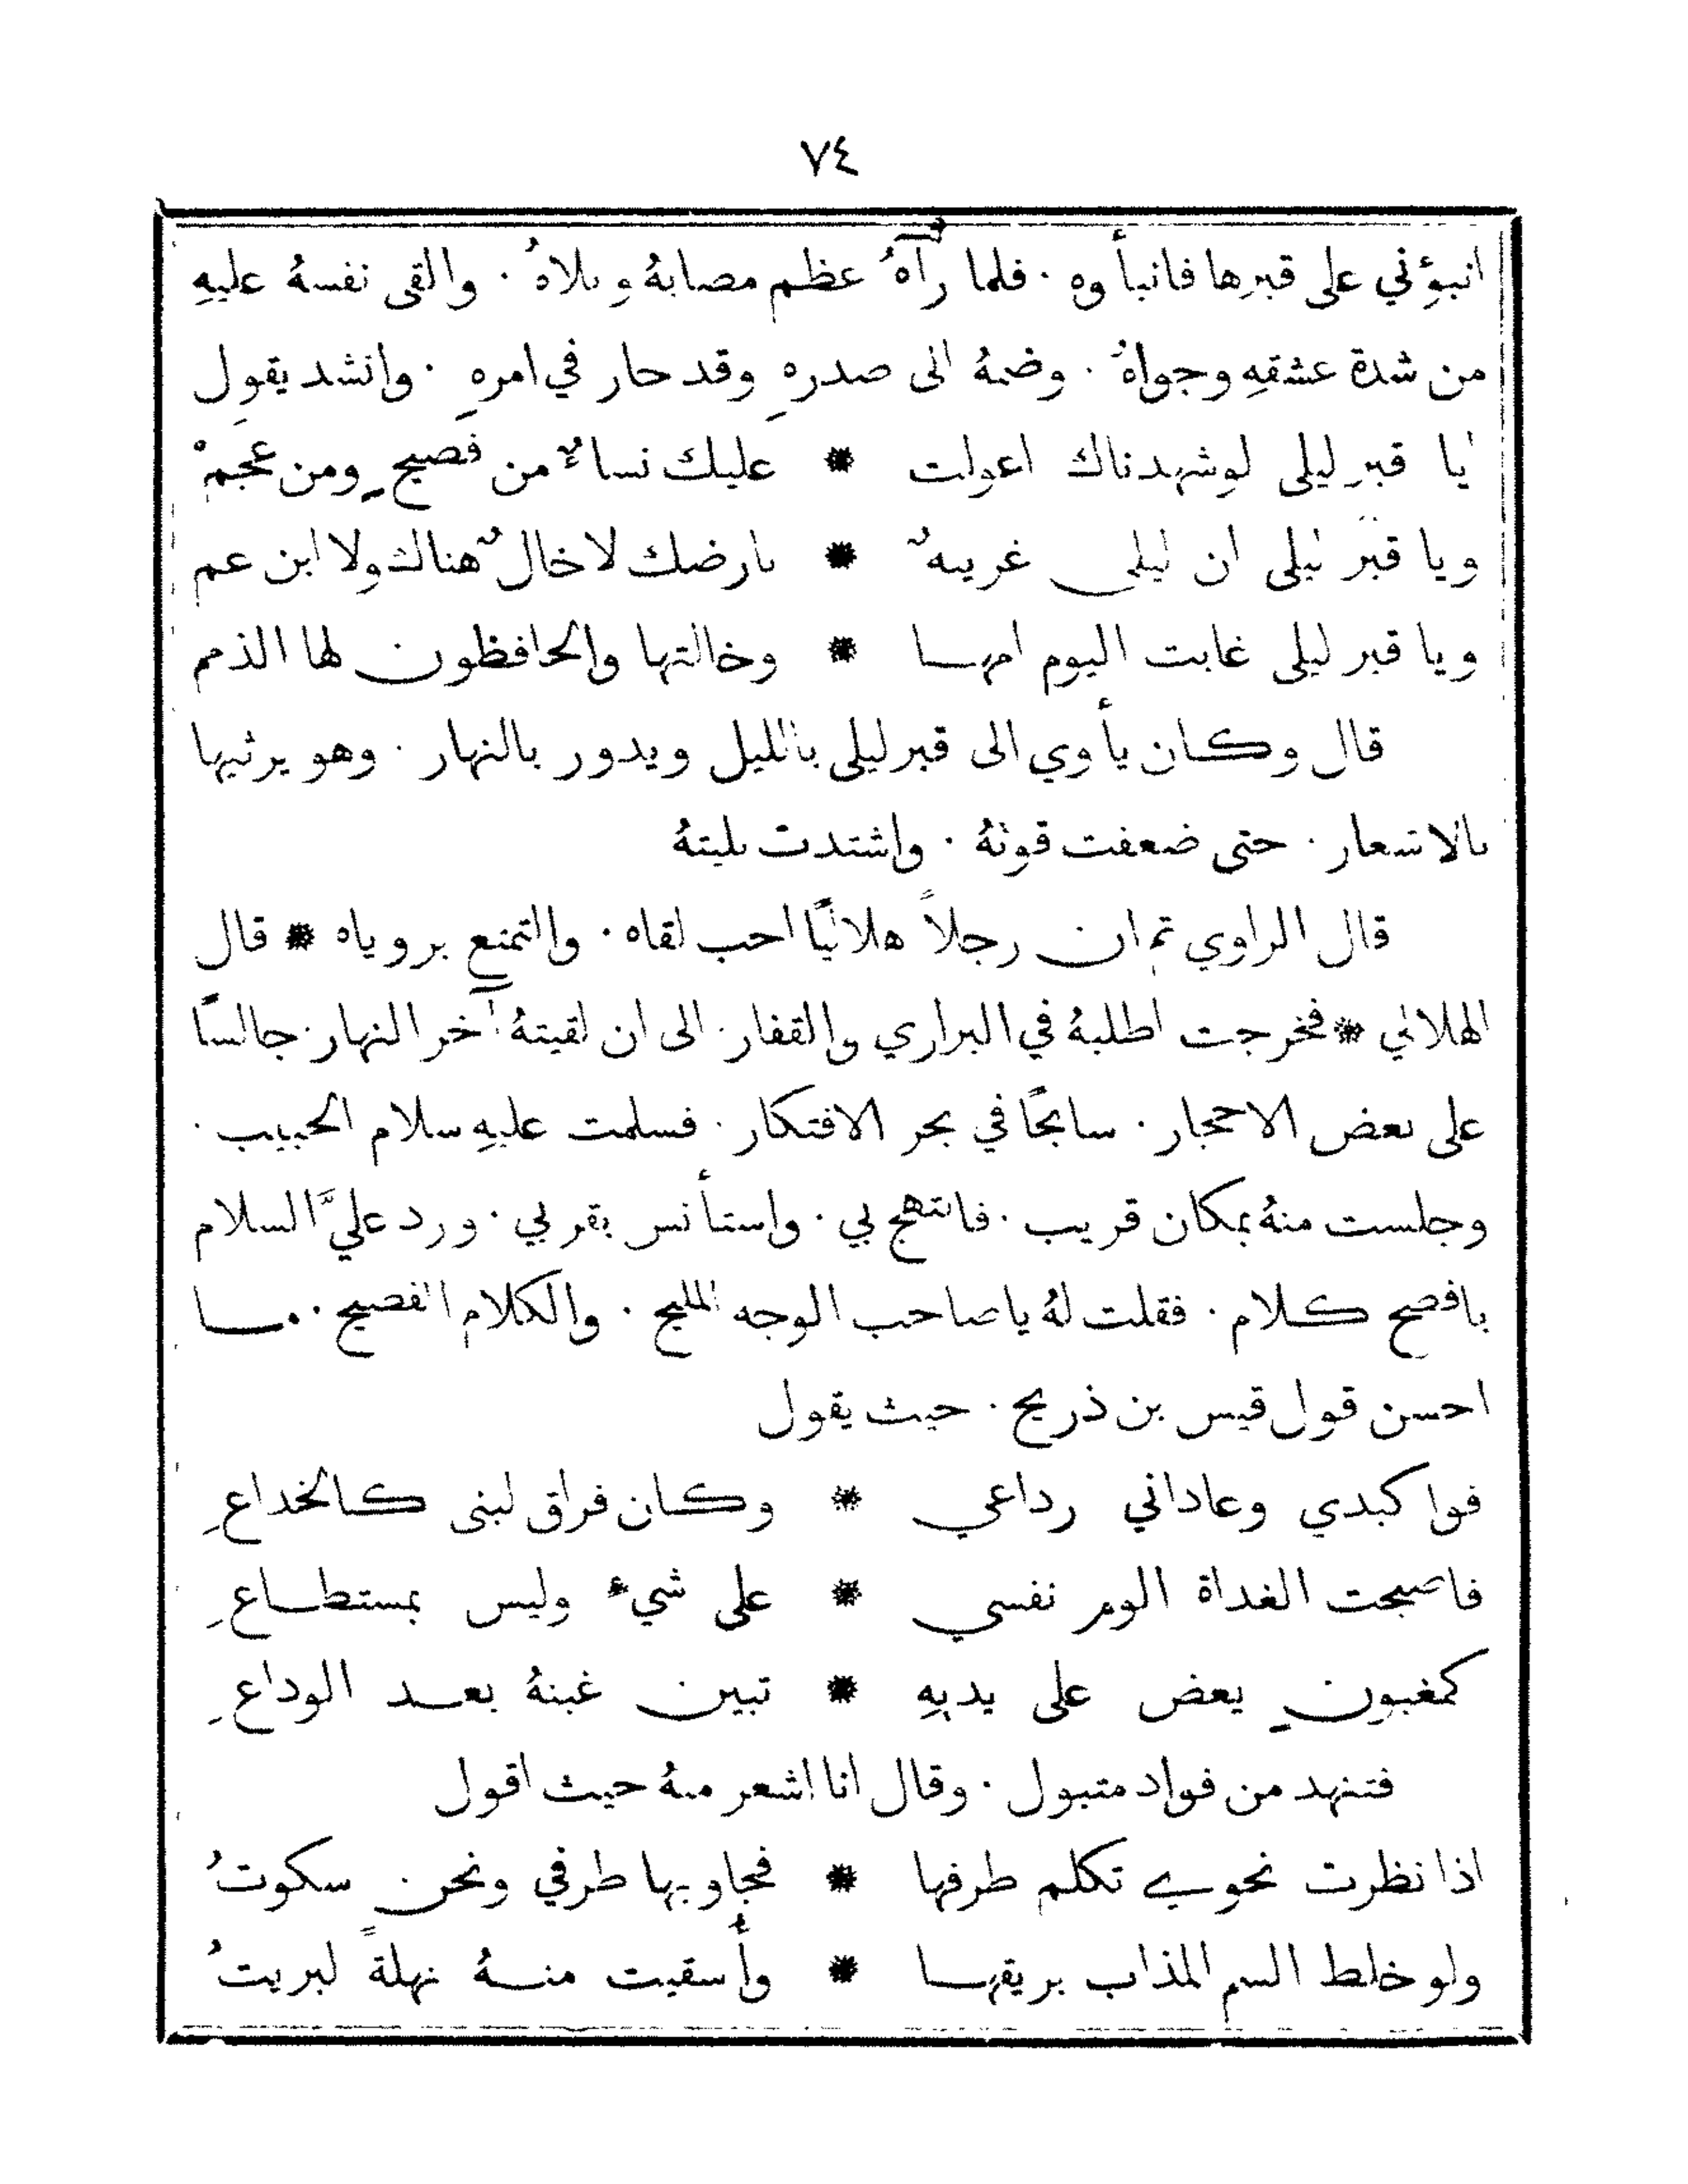 ٧٤
انبؤني على قبرها فانبأوه · فلما رآهُ عظم مصابهُ وبلاهُ · والقى نفسهُ عليهِ
من شدة عشقهِ وجواهُ · وضمهُ الى صدرهِ وقد حار في امرهِ · وانشد يقول
ايا قبر ليلى لو شهدناك اعولت * عليك نساءٌ من فصيحٍ ومن عجمْ
ويا قبر ليلى ان ليلى غريبةٌ * بارضك لا خالٌ هناك ولا ابن عم
ويا قبر ليلى غابت اليوم امها * وخالتها والحافظون لها الذمم
قال وكان يأوي الى قبر ليلى بالليل ويدور بالنهار · وهو يرثيها
بالاشعار · حتى ضعفت قوتهُ · واشتدت بليتهُ
قال الراوي ثم ان رجلاً هلاليًا احب لقاه · والتمتع بروياه * قال
الهلالي * فخرجت اطلبهُ في البراري والقفار · الى ان لقيتهُ آخر النهار · جالسًا
على بعض الاحجار · سابحًا في بحر الافتكار · فسلمت عليهِ سلام الحبيب ·
وجلست منهُ بمكان قريب · فابتهج بي · واستأنس بقربي · ورد عليَّ السلام
بافصح كلام · فقلت لهُ يا صاحب الوجه المليح · والكلام الفصيح · ما
احسن قول قيس بن ذريح · حيث يقول
فوا كبدي وعاداني رداعي * وكان فراق لبنى كالخداعِ
فاصبحت الغداة الوم نفسي * على شيءٍ وليس بمستطاعِ
كمغبونٍ يعض على يديهِ * تبين غبنهُ بعد الوداعِ
فتنهد من فواد متبول · وقال انا اشعر منهُ حيث اقول
اذا نظرت نحوي تكلم طرفها * فجاوبها طرفي ونحن سكوتُ
ولو خلط السم المذاب بريقها * وأسقيت منهُ نهلةً لبريتُ